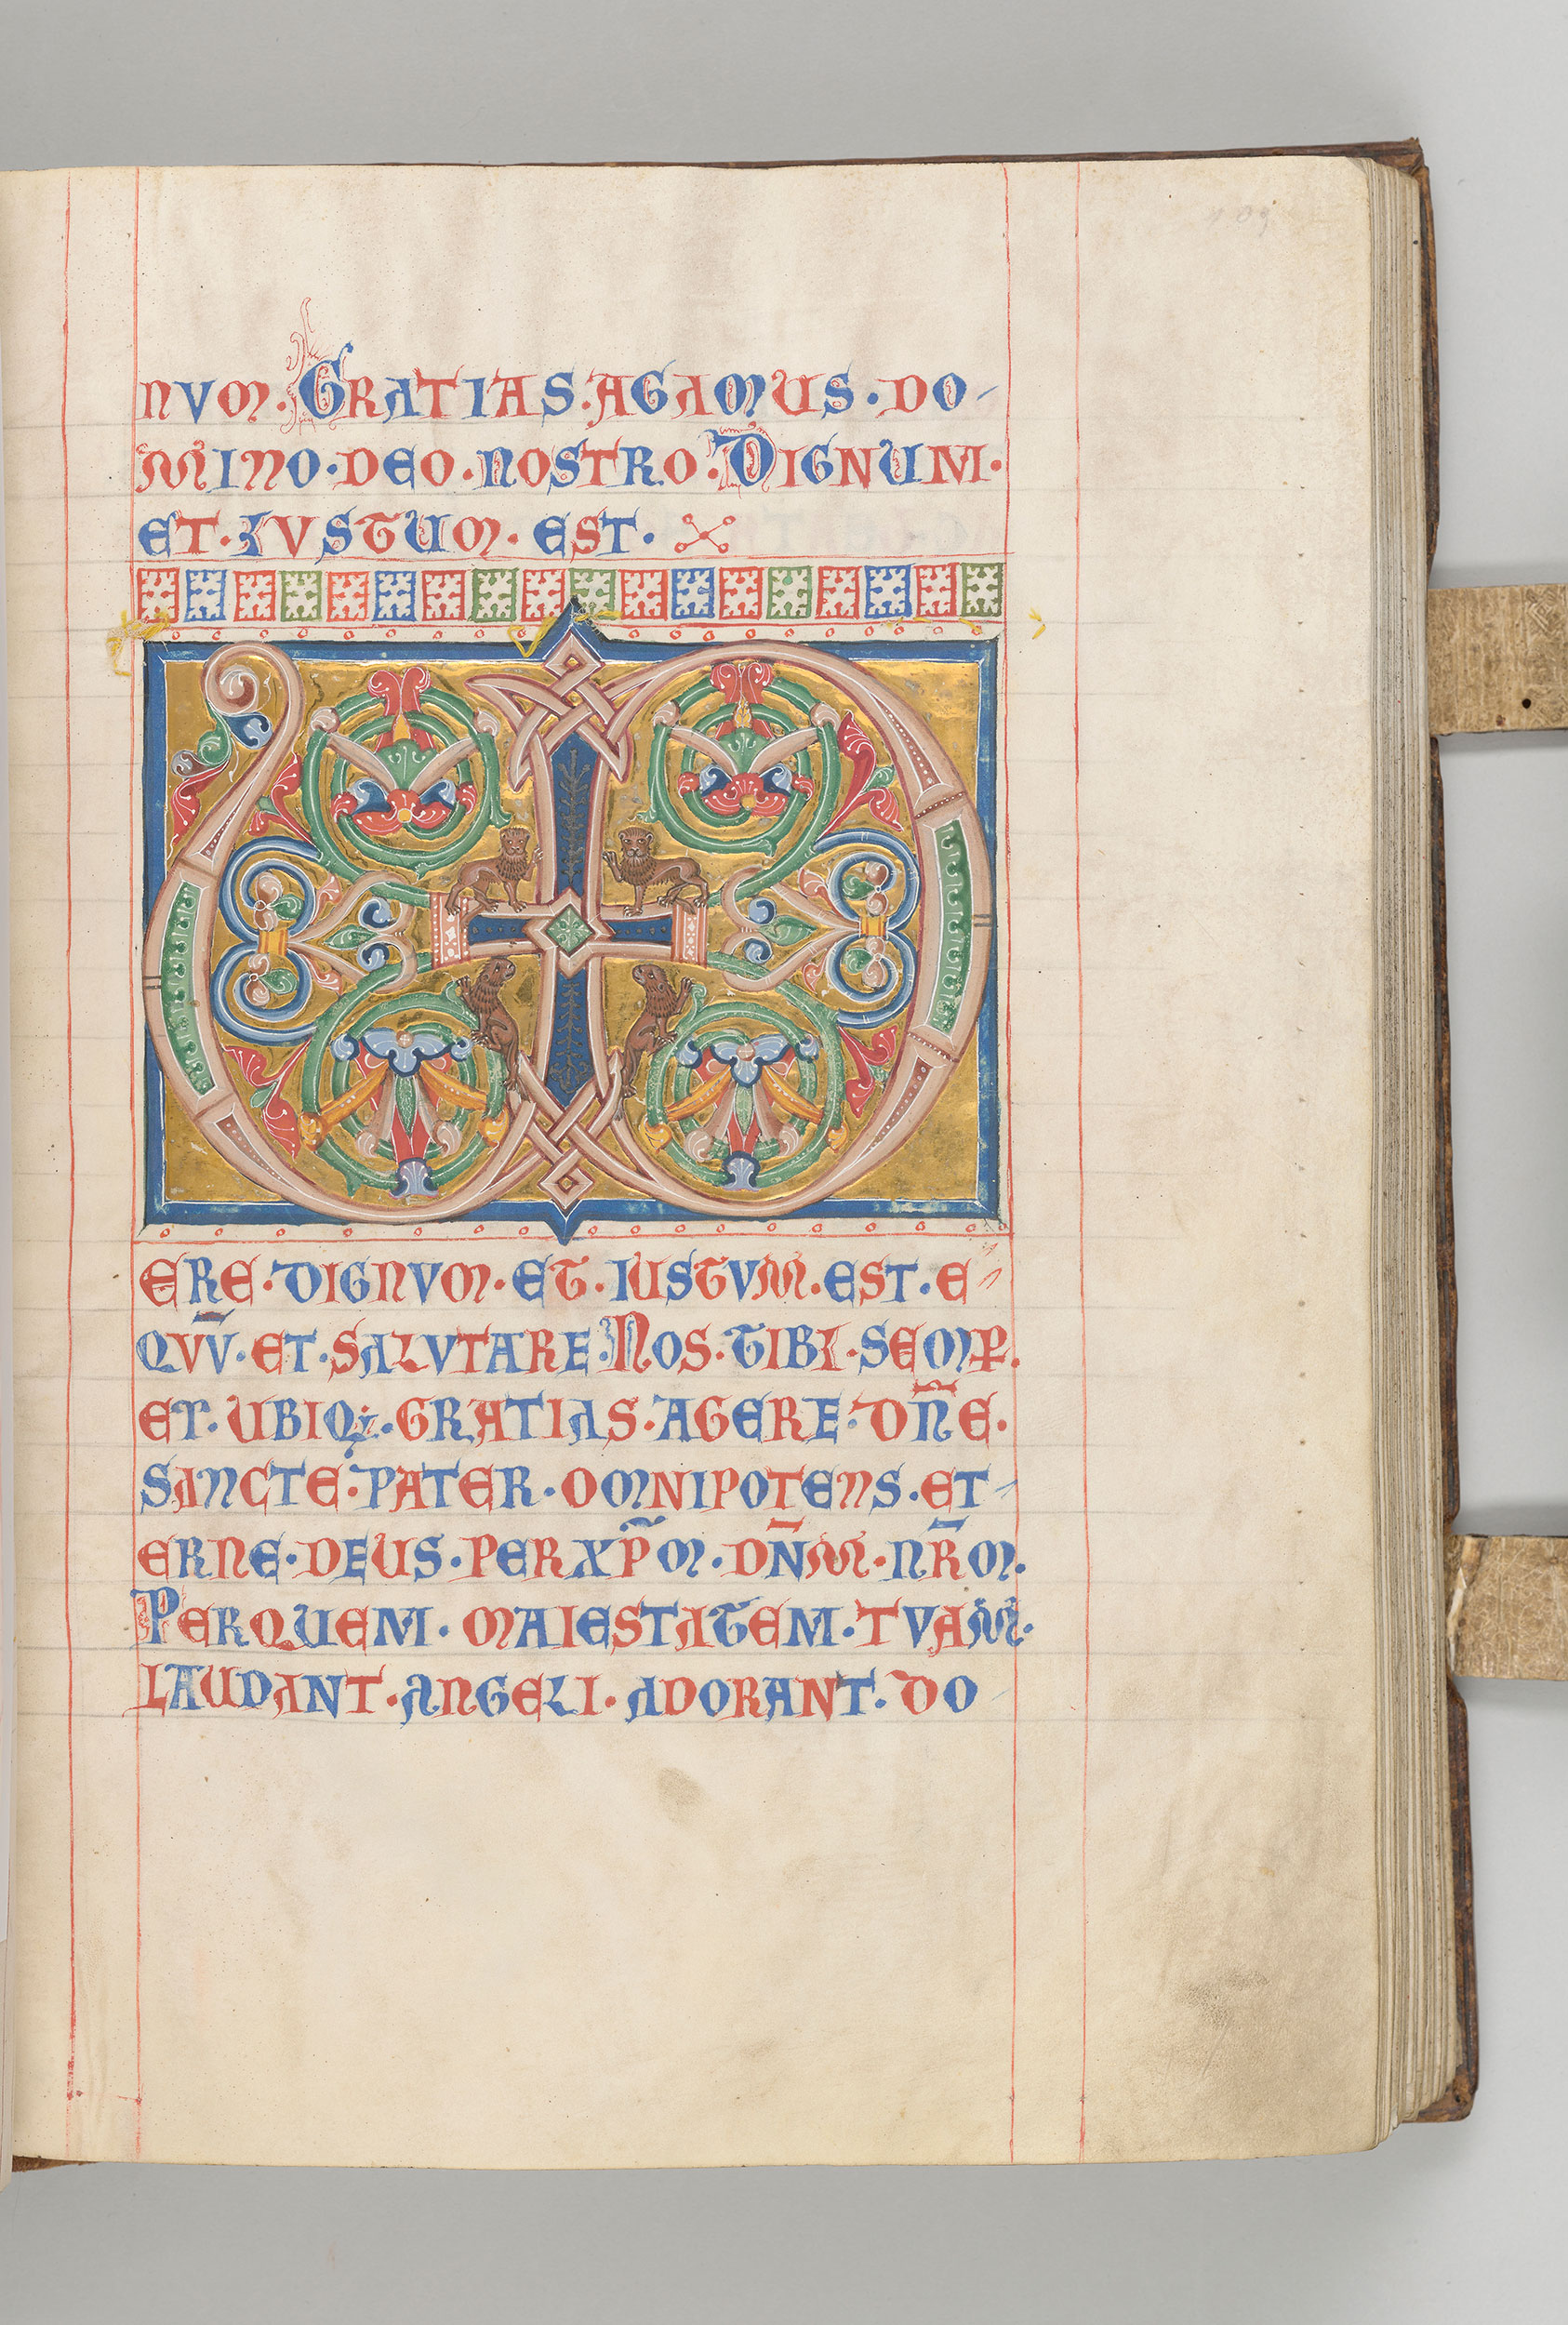 NVM. GRATIAS. AGAMUS. DO-
MINO. DEO. NOSTRO. DIGNUM.
ET. IVSTUM. EST.
ERE. DIGNVM. ET. IUSTVM. EST. E
QVV̄. ET. SALVTARE. NOS. TIBI. SEMꝐ.
ET. UBIQ;. GRATIAS. AGERE. DÑE.
SANCTE. PATER. OMNIPOTENS. ET-
ERNE. DEUS. PER XP̄M. DN̄M. NR̄M.
PER QUEM. MAIESTATEM. TVAM.
LAUDANT. ANGELI. ADORANT. DO